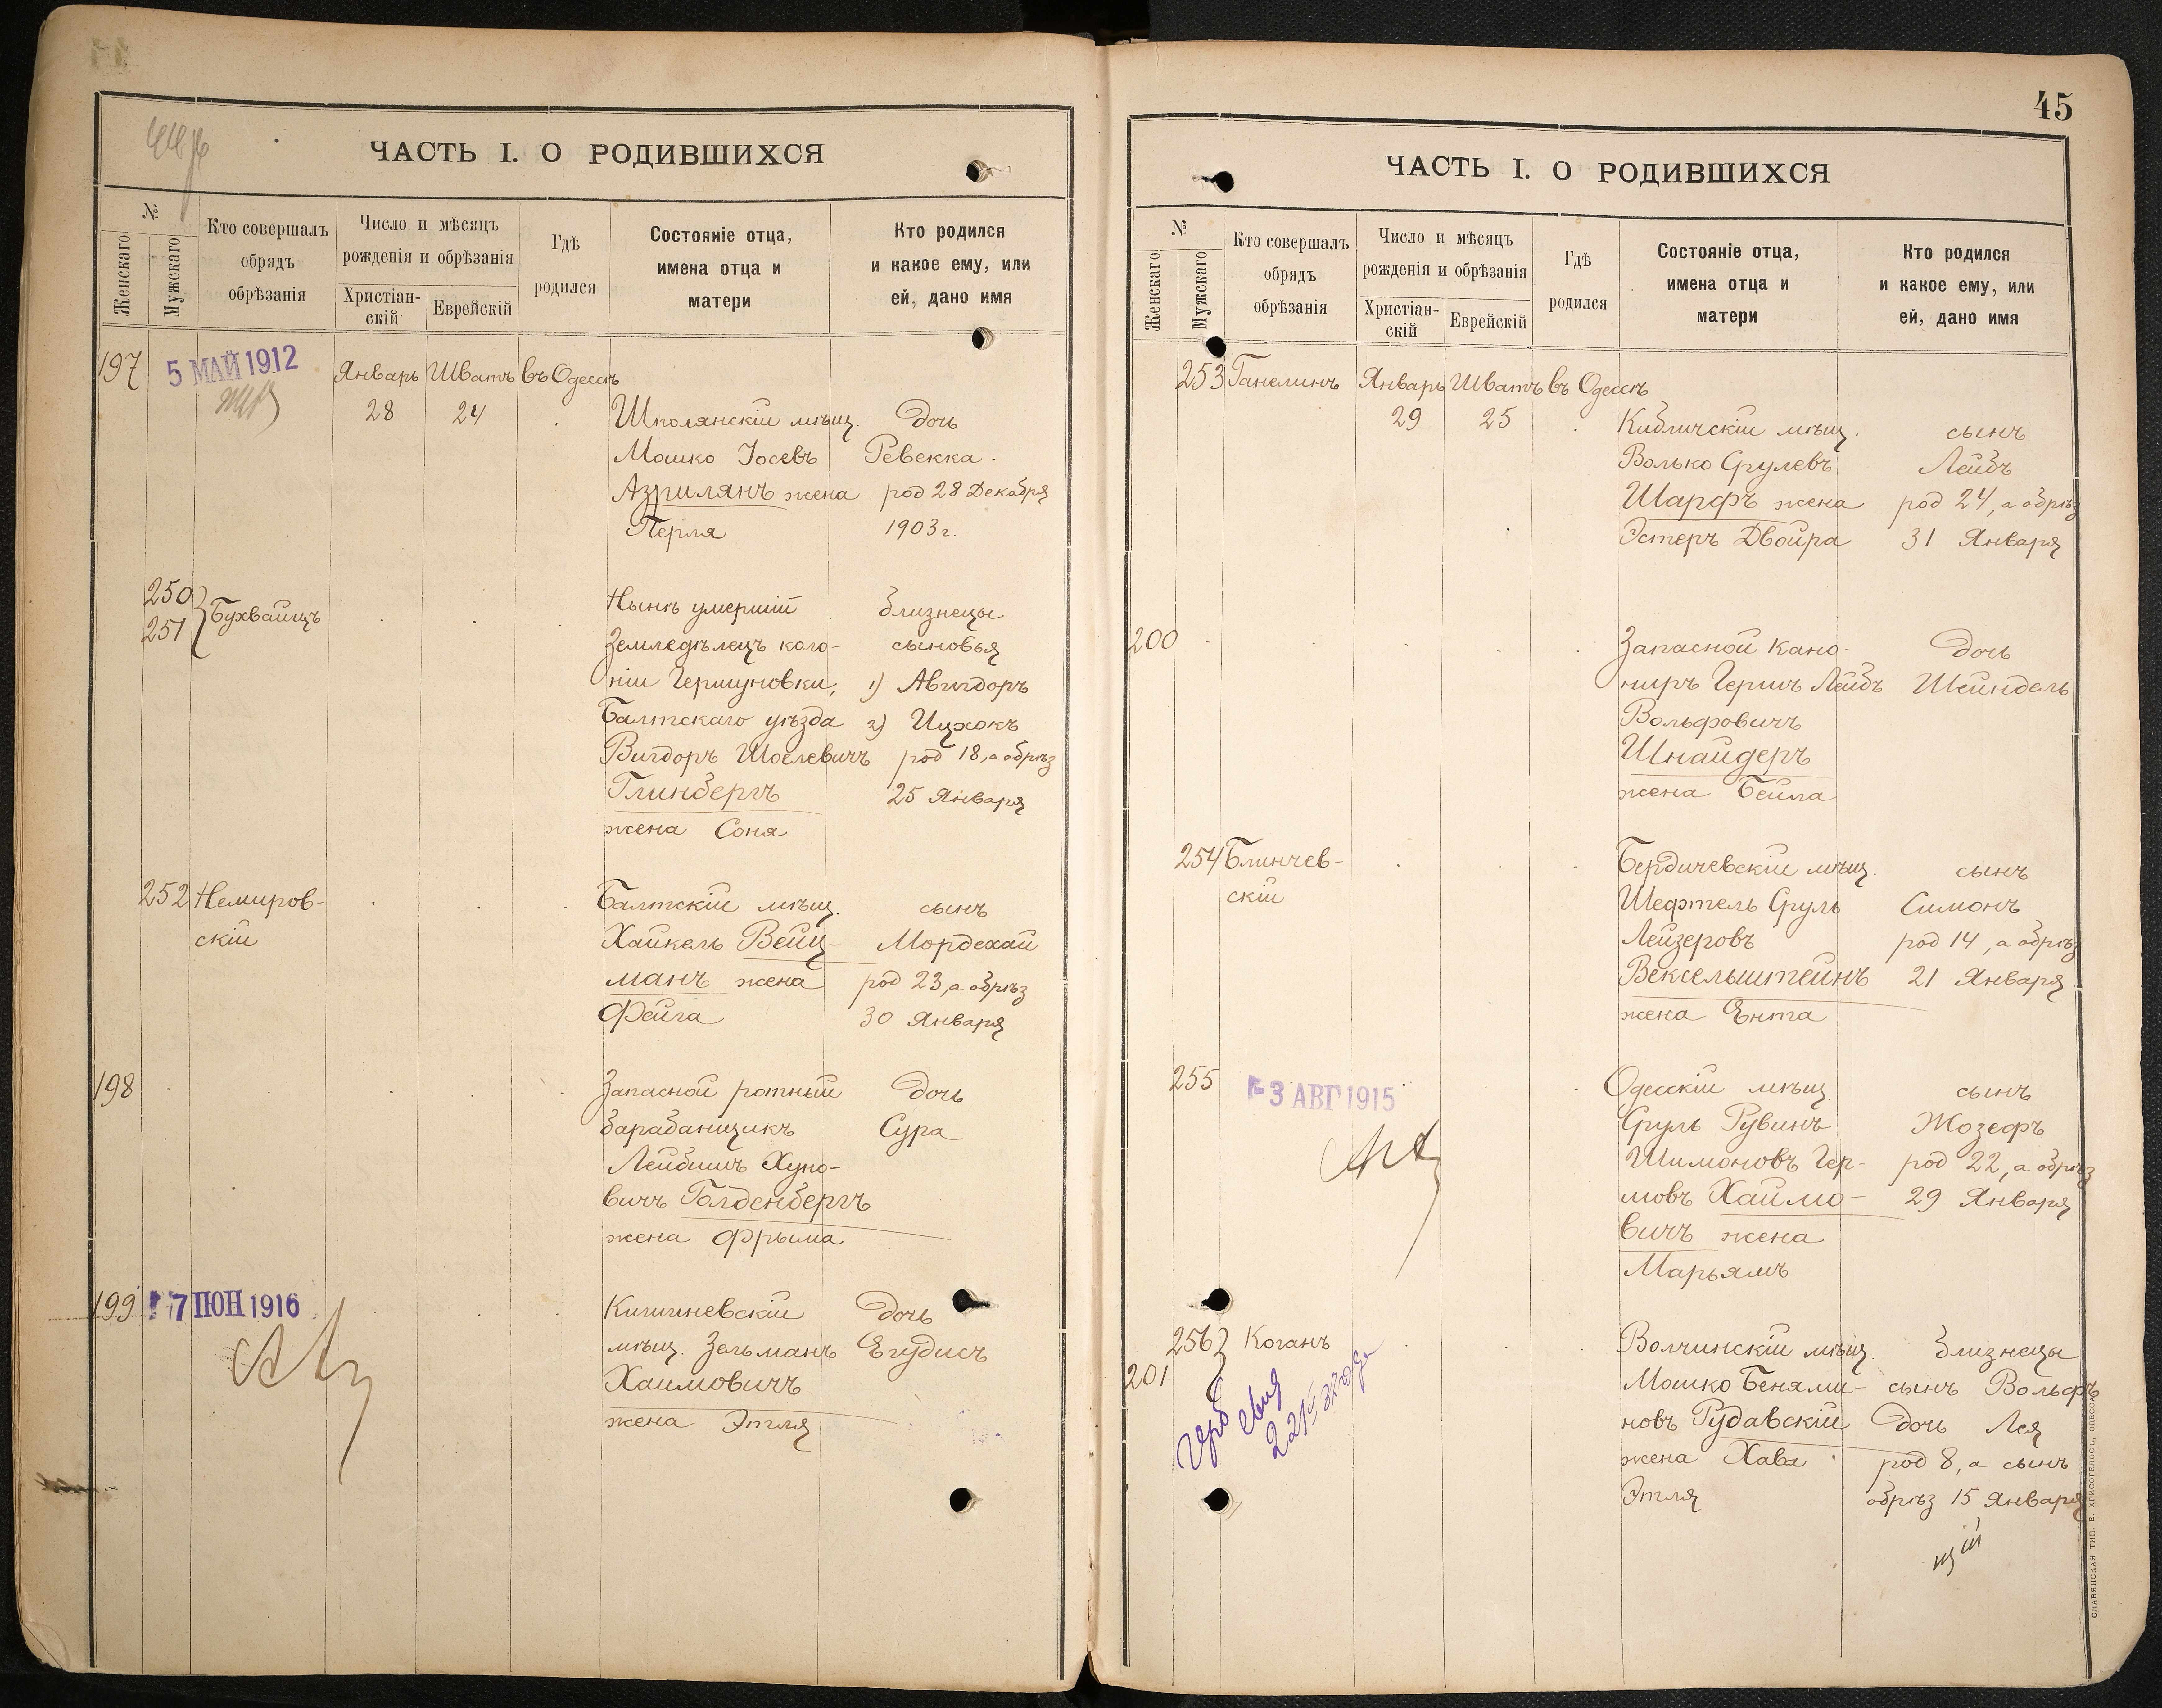 ЧАСТЬ I. О РОДИВШИХСЯ
№
Женскаго
Мужскаго
Кто совершалъ
обрядъ
обрѣзанія
Число и мѣсяцъ
рожденія и обрѣзанія
Христіан-
скій
Еврейскій
Гдѣ
родился
Состояніе отца,
имена отца и
матери
Кто родился
и какое ему, или
ей, дано имя
197 5 МАЙ 1912 Январь Шватъ въ Одессѣ
28 24 Шполянскій мѣщ. дочь
Мошко Іосевъ Ревекка
Азрилянъ жена род 28 Декабря
Перля 1903 г.
250
251 Бухвайцъ
Нынѣ умершій близнецы
Земледѣлецъ коло- сыновья
ніи Гершуновки, 1) Авигдоръ
Балтскаго уѣзда 2) Ицхокъ
Вигдоръ Шоелевичъ род 18, а обрѣз
Глинбергъ 25 Января
жена Соня
252 Немиров-
скій
Балтскій мѣщ. сынъ
Хайкель Вейц- Мордехай
манъ жена род 23, а обрѣз
Фейга 30 Января
198 Запасной ротный дочь
барабанщикъ Сура
Лейбишъ Хуно-
вичъ Голденбергъ
жена Фрыма
199 7 ІЮН 1916
Кишиневскій дочь
мѣщ. Зельманъ Егудисъ
Хаимовичъ
жена Этля
45
ЧАСТЬ I. О РОДИВШИХСЯ
№
Женскаго
Мужскаго
Кто совершалъ
обрядъ
обрѣзанія
Число и мѣсяцъ
рожденія и обрѣзанія
Христіан-
скій
Еврейскій
Гдѣ
родился
Состояніе отца,
имена отца и
матери
Кто родился
и какое ему, или
ей, дано имя
253 Ганелинъ Январь Шватъ въ Одессѣ
29 25 Кибличскій мѣщ. сынъ
Волько Срулевъ Лейбъ
Шарфъ жена род 24, а обрѣз
Эстеръ Двойра 31 Января
200 Запасной кано- дочь
ниръ Гершъ Лейбъ Шейндель
Вольфовичъ
Шнайдеръ
жена Бейла
254 Блинчев-
скій
Бердичевскій мѣщ. сынъ
Шефтель Сруль Симонъ
Лейзеровъ род 14, а обрѣз
Вексельштейнъ 21 Января
жена Ента
255 3 АВГ 1915
Одесскій мѣщ. сынъ
Сруль Рувинъ Жозефъ
Шимоновъ Гер- род 22, а обрѣз
шовъ Хаимо- 29 Января
вичъ жена
Марьямъ
256 Коганъ
201
Волчинскій мѣщ. близнецы
Мошко Бенями- сынъ Вольфъ
новъ Рудавскій дочь Лея
жена Хава род 8, а сынъ
Этля обрѣз 15 Января
СЛАВЯНСКАЯ ТИП. Е. ХРИСОГЕЛОСЪ, ОДЕССА